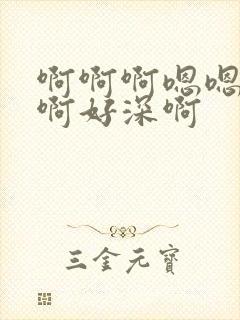 啊啊啊嗯嗯
啊好深啊
三金元寶